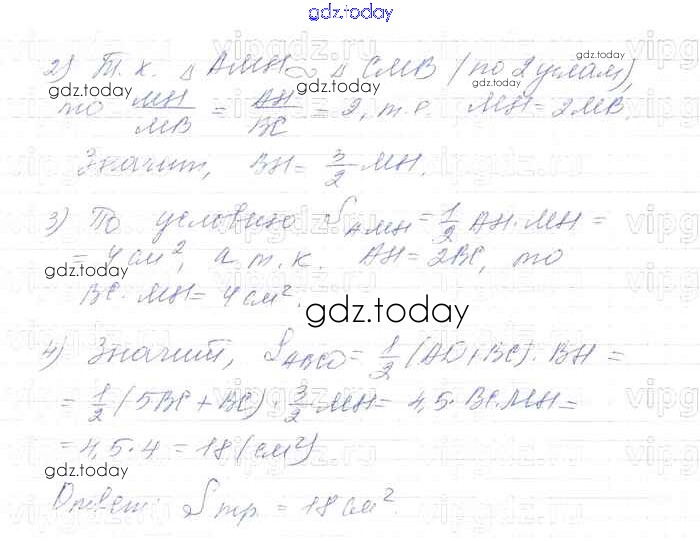 gdz.today
2) Т.к. △ AMH ∾ △ CMB (по 2 углам),
то MH/MB = AH/BC = 2, т.е. MH = 2MB.
Значит, BH = 3/2 MH.
3) По условию S_AMH = 1/2 AH·MH =
= 4 см², а т.к. AH = 2BC, то
BC·MH = 4 см².
gdz.today
4) Значит, S_ABCD = 1/2 (AD+BC)·BH =
= 1/2 (5BC + BC)·3/2 MH = 4,5·BC·MH =
= 4,5·4 = 18 (см²)
gdz.today
Ответ: S тр. = 18 см².